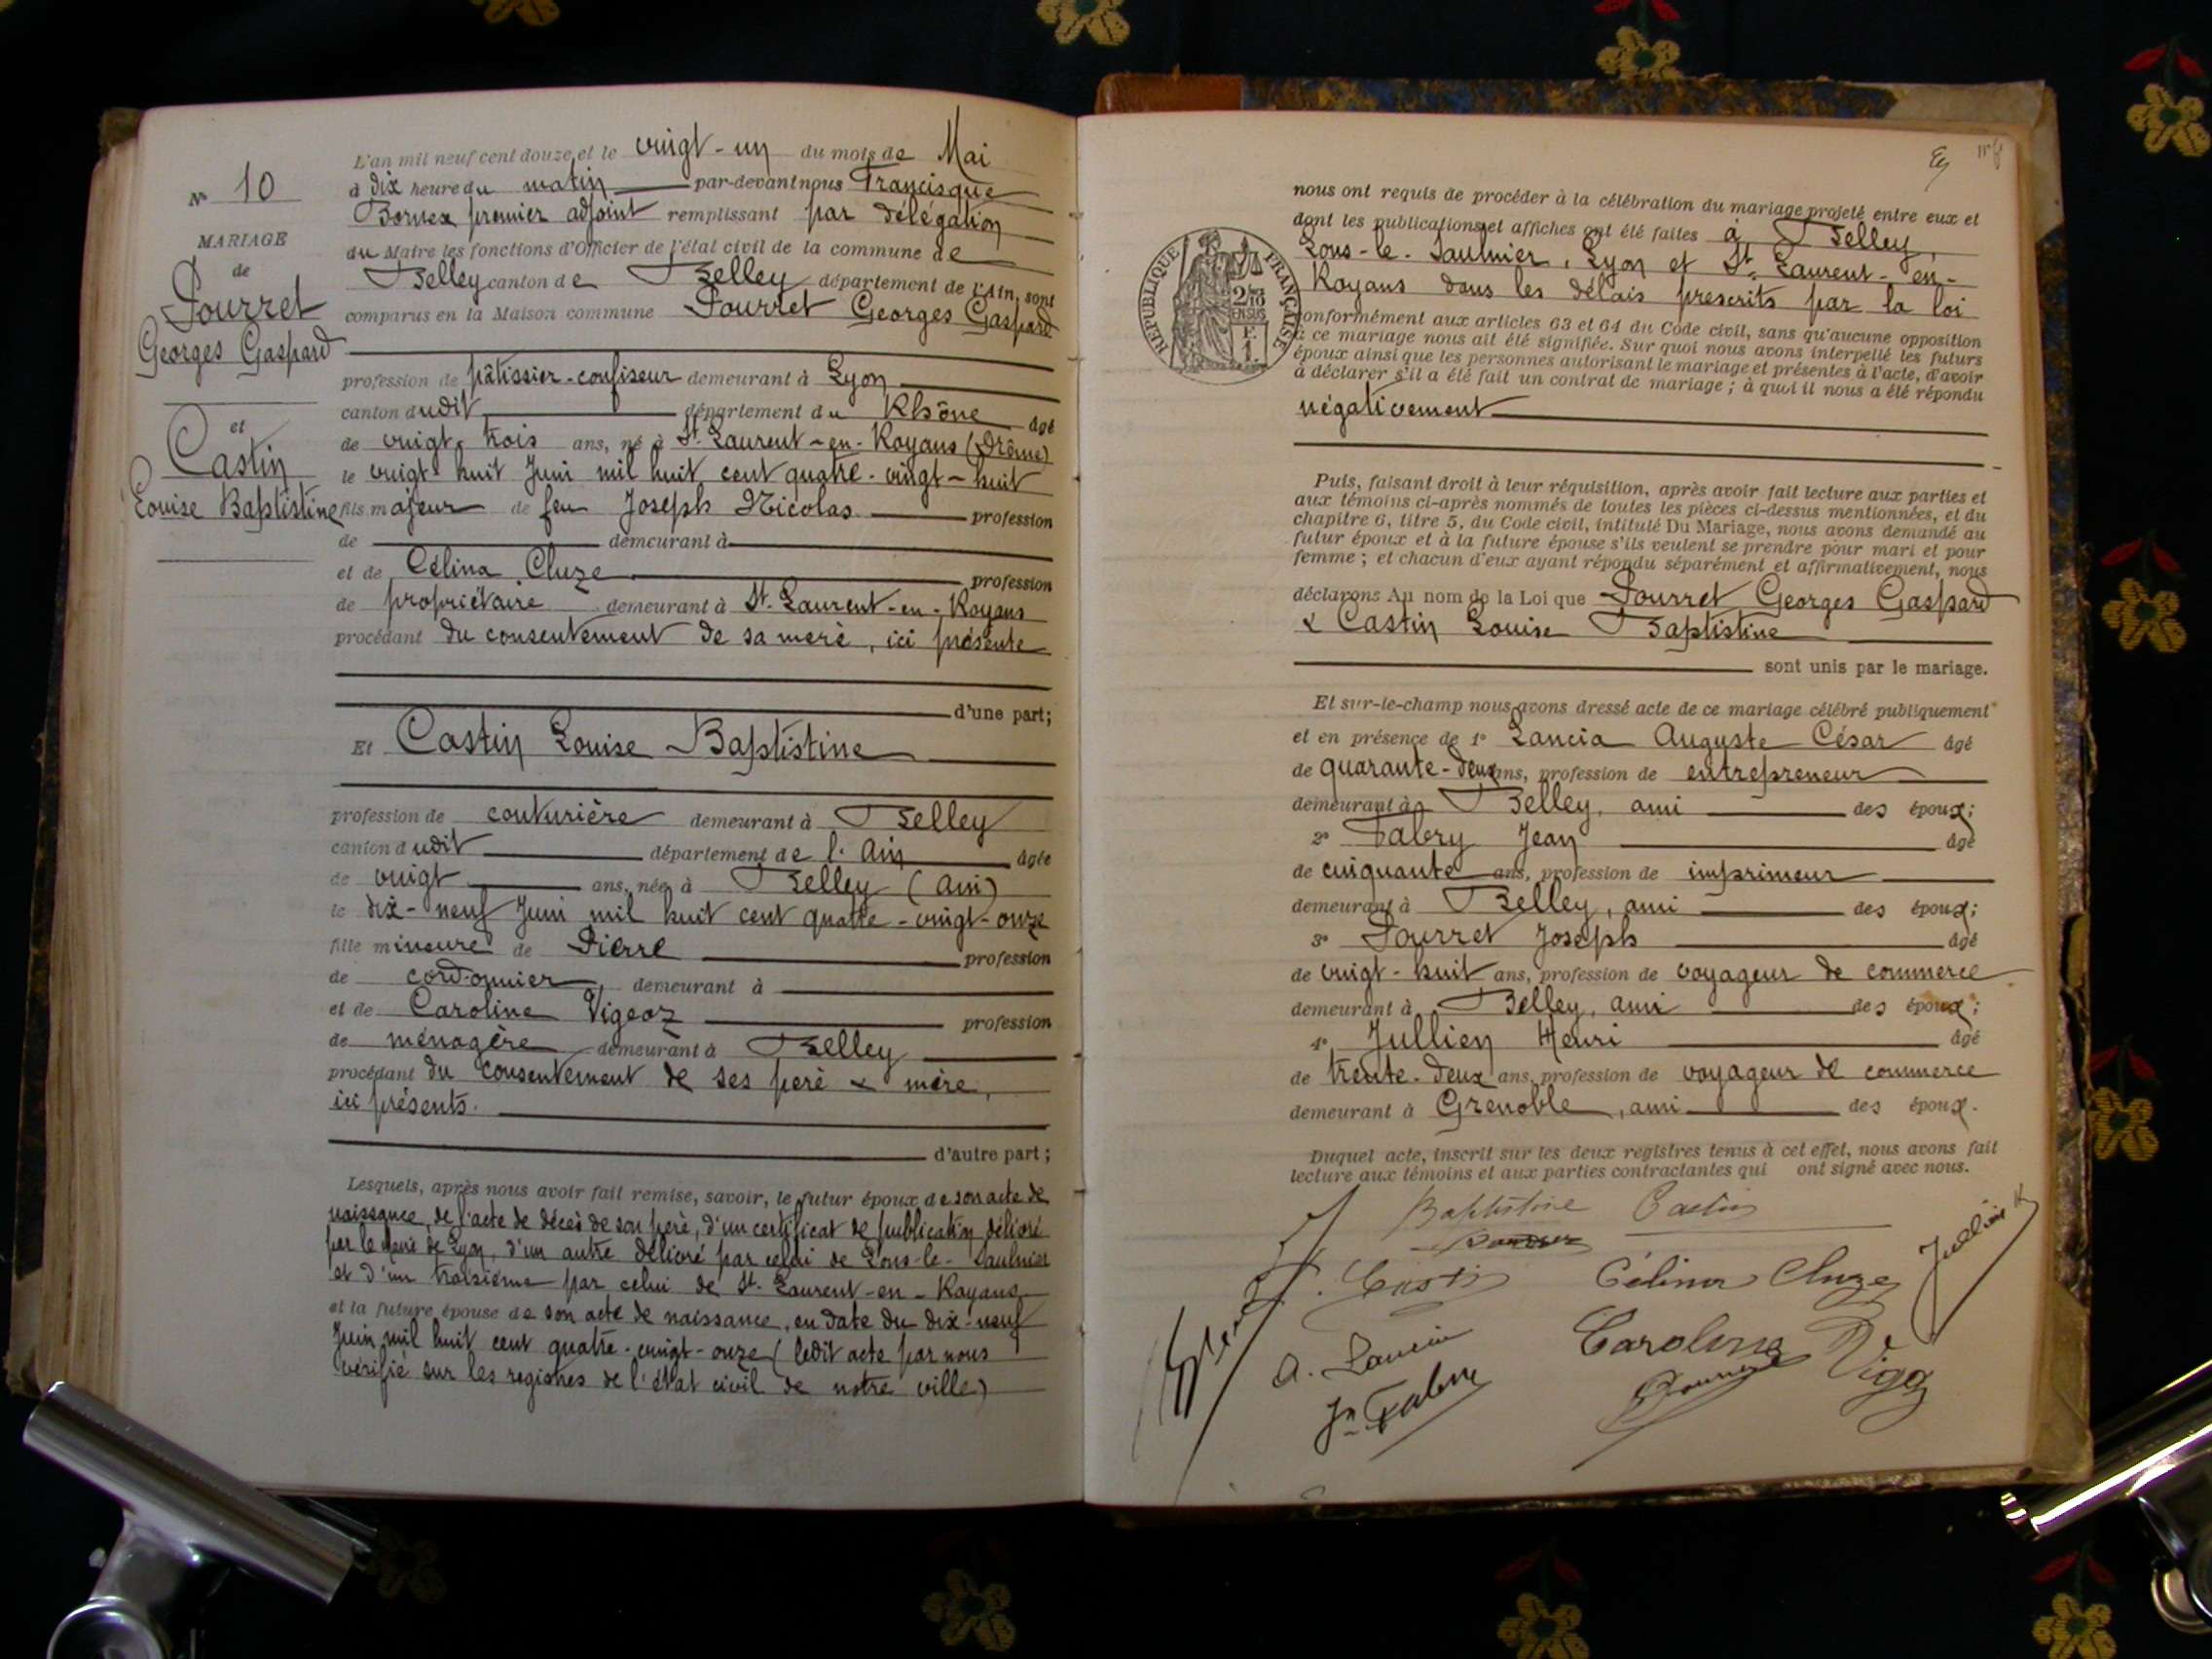 L'an mil neuf cent douze, et le vingt-un du mois de Mai
N° 10
à dix heure du matin par-devant nous Francisque
Bornex premier adjoint remplissant par délégation
MARIAGE
du Maire les fonctions d'Officier de l'état civil de la commune de
de
Belley canton de Belley département de l'Ain, sont
Pourret
comparus en la Maison commune Pourret Georges Gaspard
Georges Gaspard
profession de pâtissier-confiseur demeurant à Lyon
canton dudit département du Rhône âgé
et
de vingt-trois ans, né à St. Laurent-en-Royans (Drôme)
Castin
le vingt-huit Juin mil huit cent quatre-vingt-huit
Louise Baptistine
fils majeur de feu Joseph Nicolas profession
de demeurant à
et de Célina Cluze profession
de propriétaire demeurant à St. Laurent-en-Royans
procédant du consentement de sa mère, ici présente
d'une part;
Et Castin Louise Baptistine
profession de couturière demeurant à Belley
canton dudit département de l'Ain âgée
de vingt ans, née à Belley (Ain)
le dix-neuf Juin mil huit cent quatre-vingt-onze
fille mineure de Pierre profession
de cordonnier demeurant à
et de Caroline Vigeoz profession
de ménagère demeurant à Belley
procédant du consentement de ses père & mère,
ici présents.
d'autre part;
Lesquels, après nous avoir fait remise, savoir, le futur époux de son acte de
naissance, de l'acte de décès de son père, d'un certificat de publication délivré
par le Maire de Lyon, d'un autre délivré par celui de Lons-le-Saulnier
et d'un troisième par celui de St. Laurent-en-Royans
et la future épouse de son acte de naissance, en date du dix-neuf
Juin mil huit cent quatre-vingt-onze (ledit acte par nous
vérifié sur les registres de l'état civil de notre ville)
nous ont requis de procéder à la célébration du mariage projeté entre eux et
dont les publications et affiches ont été faites à Belley
Lons-le-Saulnier, Lyon et St. Laurent-en-
Royans dans les délais prescrits par la loi
RÉPUBLIQUE FRANÇAISE
2/10
EN SUS
F.
1.
conformément aux articles 63 et 64 du Code civil, sans qu'aucune opposition
à ce mariage nous ait été signifiée. Sur quoi nous avons interpellé les futurs
époux ainsi que les personnes autorisant le mariage et présentes à l'acte, d'avoir
à déclarer s'il a été fait un contrat de mariage; à quoi il nous a été répondu
négativement
Puis, faisant droit à leur réquisition, après avoir fait lecture aux parties et
aux témoins ci-après nommés de toutes les pièces ci-dessus mentionnées, et du
chapitre 6, titre 5, du Code civil, intitulé Du Mariage, nous avons demandé au
futur époux et à la future épouse s'ils veulent se prendre pour mari et pour
femme; et chacun d'eux ayant répondu séparément et affirmativement, nous
déclarons Au nom de la Loi que Pourret Georges Gaspard
& Castin Louise Baptistine
sont unis par le mariage.
Et sur-le-champ nous avons dressé acte de ce mariage célébré publiquement
et en présence de 1° Lancia Auguste César âgé
de quarante-deux ans, profession de entrepreneur
demeurant à Belley, ami des époux;
2° Fabry Jean âgé
de cinquante ans, profession de imprimeur
demeurant à Belley, ami des époux;
3° Pourret Joseph âgé
de vingt-huit ans, profession de voyageur de commerce
demeurant à Belley, ami des époux;
4° Jullien Henri âgé
de trente-deux ans, profession de voyageur de commerce
demeurant à Grenoble, ami des époux.
Duquel acte, inscrit sur les deux registres tenus à cet effet, nous avons fait
lecture aux témoins et aux parties contractantes qui ont signé avec nous.
Baptistine Castin
Célina Cluze
Jullien H
Caroline
A. Lancia